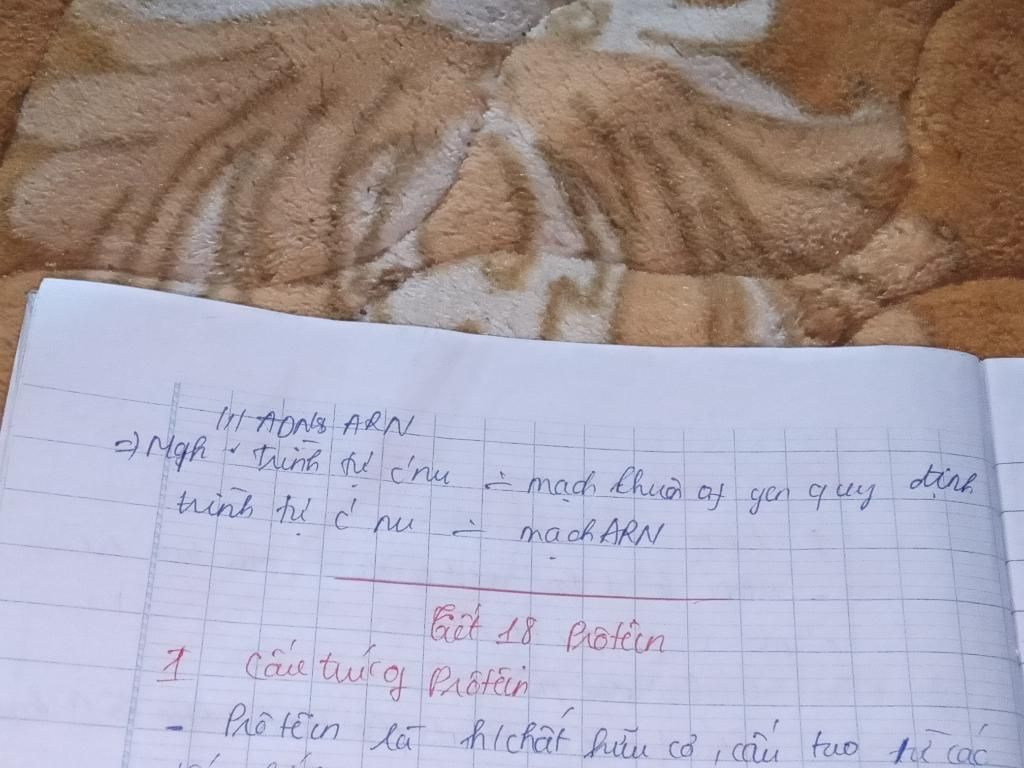 III ADN & ARN
=> Ngh : trình tự c' nu ÷ mạch khuôn of gen quy định
trình tự c' nu ÷ mạch ARN
Tiết 18 Prôtêin
1 Cấu trúc of Prôtêin
- Prôtêin là h/chất hữu cơ, cấu tạo từ các